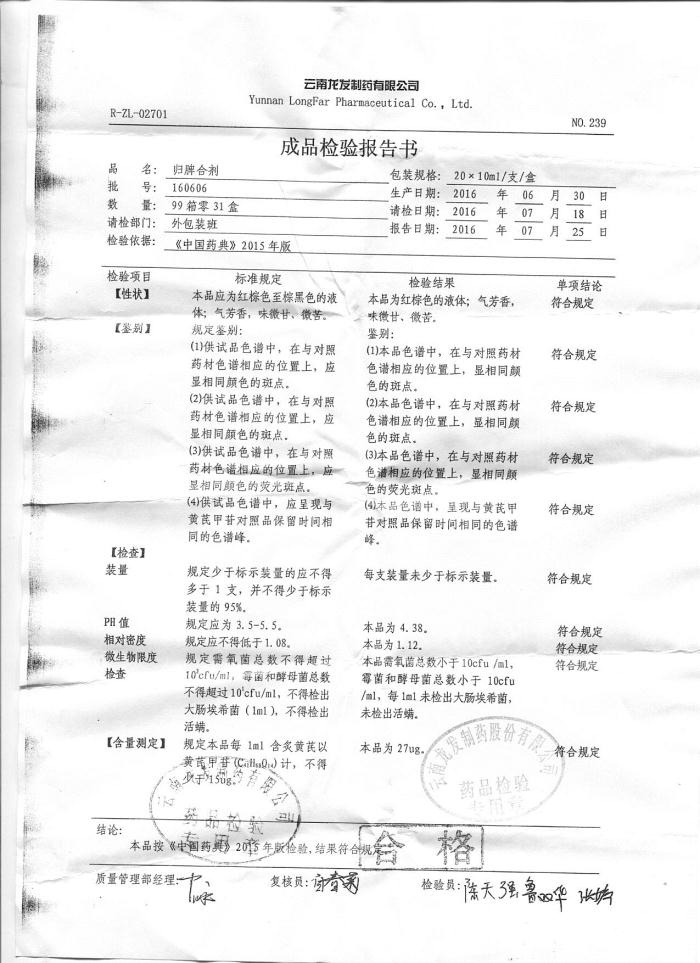 云南龙发制药有限公司
Yunnan LongFar Pharmaceutical Co., Ltd.
R-ZL-02701
NO.239
成品检验报告书
品 名: 归牌合剂 包装规格: 20×10ml/支/盒
批 号: 160606 生产日期: 2016 年 06 月 30 日
数 量: 99箱零31盒 请检日期: 2016 年 07 月 18 日
请检部门: 外包装班 报告日期: 2016 年 07 月 25 日
检验依据: 《中国药典》2015年版
检验项目 标准规定 检验结果 单项结论
【性状】 本品应为红棕色至棕黑色的液 本品为红棕色的液体;气芳香, 符合规定
体;气芳香,味微甘、微苦。 味微甘、微苦。
【鉴别】 规定鉴别: 鉴别:
(1)供试品色谱中,在与对照 (1)本品色谱中,在与对照药材 符合规定
药材色谱相应的位置上,应 色谱相应的位置上,显相同颜
显相同颜色的斑点。 色的斑点。
(2)供试品色谱中,在与对照 (2)本品色谱中,在与对照药材 符合规定
药材色谱相应的位置上,应 色谱相应的位置上,显相同颜
显相同颜色的斑点。 色的斑点。
(3)供试品色谱中,在与对照 (3)本品色谱中,在与对照药材 符合规定
药材色谱相应的位置上,应 色谱相应的位置上,显相同颜
显相同颜色的荧光斑点。 色的荧光斑点。
(4)供试品色谱中,应呈现与 (4)本品色谱中,呈现与黄芪甲 符合规定
黄芪甲苷对照品保留时间相 苷对照品保留时间相同的色谱
同的色谱峰。 峰。
【检查】
装量 规定少于标示装量的应不得 每支装量未少于标示装量。 符合规定
多于 1 支,并不得少于标示
装量的 95%。
PH 值 规定应为 3.5-5.5。 本品为 4.38。 符合规定
相对密度 规定应不得低于 1.08。 本品为 1.12。 符合规定
微生物限度 规定需氧菌总数不得超过 本品需氧菌总数小于 10cfu /ml, 符合规定
检查 cfu/ml,霉菌和酵母菌总数 霉菌和酵母菌总数小于 10cfu
不得超过 cfu/ml,不得检出 /ml,每 1ml 未检出大肠埃希菌,
大肠埃希菌(1ml),不得检出 未检出活螨。
活螨。
【含量测定】 规定本品每 1ml 含炙黄芪以 本品为 27ug。 符合规定
黄芪甲苷 计,不得
少于 15ug。
云南龙发制药股份有限公司
药品检验
专用章
药品检验
专用章
结论:
本品按《中国药典》2015年版检验,结果符合规定
合格
质量管理部经理: 复核员: 检验员: 陈天强